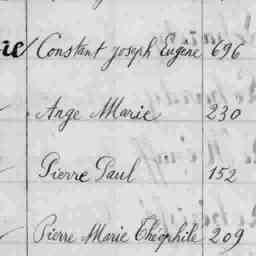 ie Constant joseph Eugène 696
Ange Marie 230
Pierre Paul 152
Pierre Marie Théophile 209